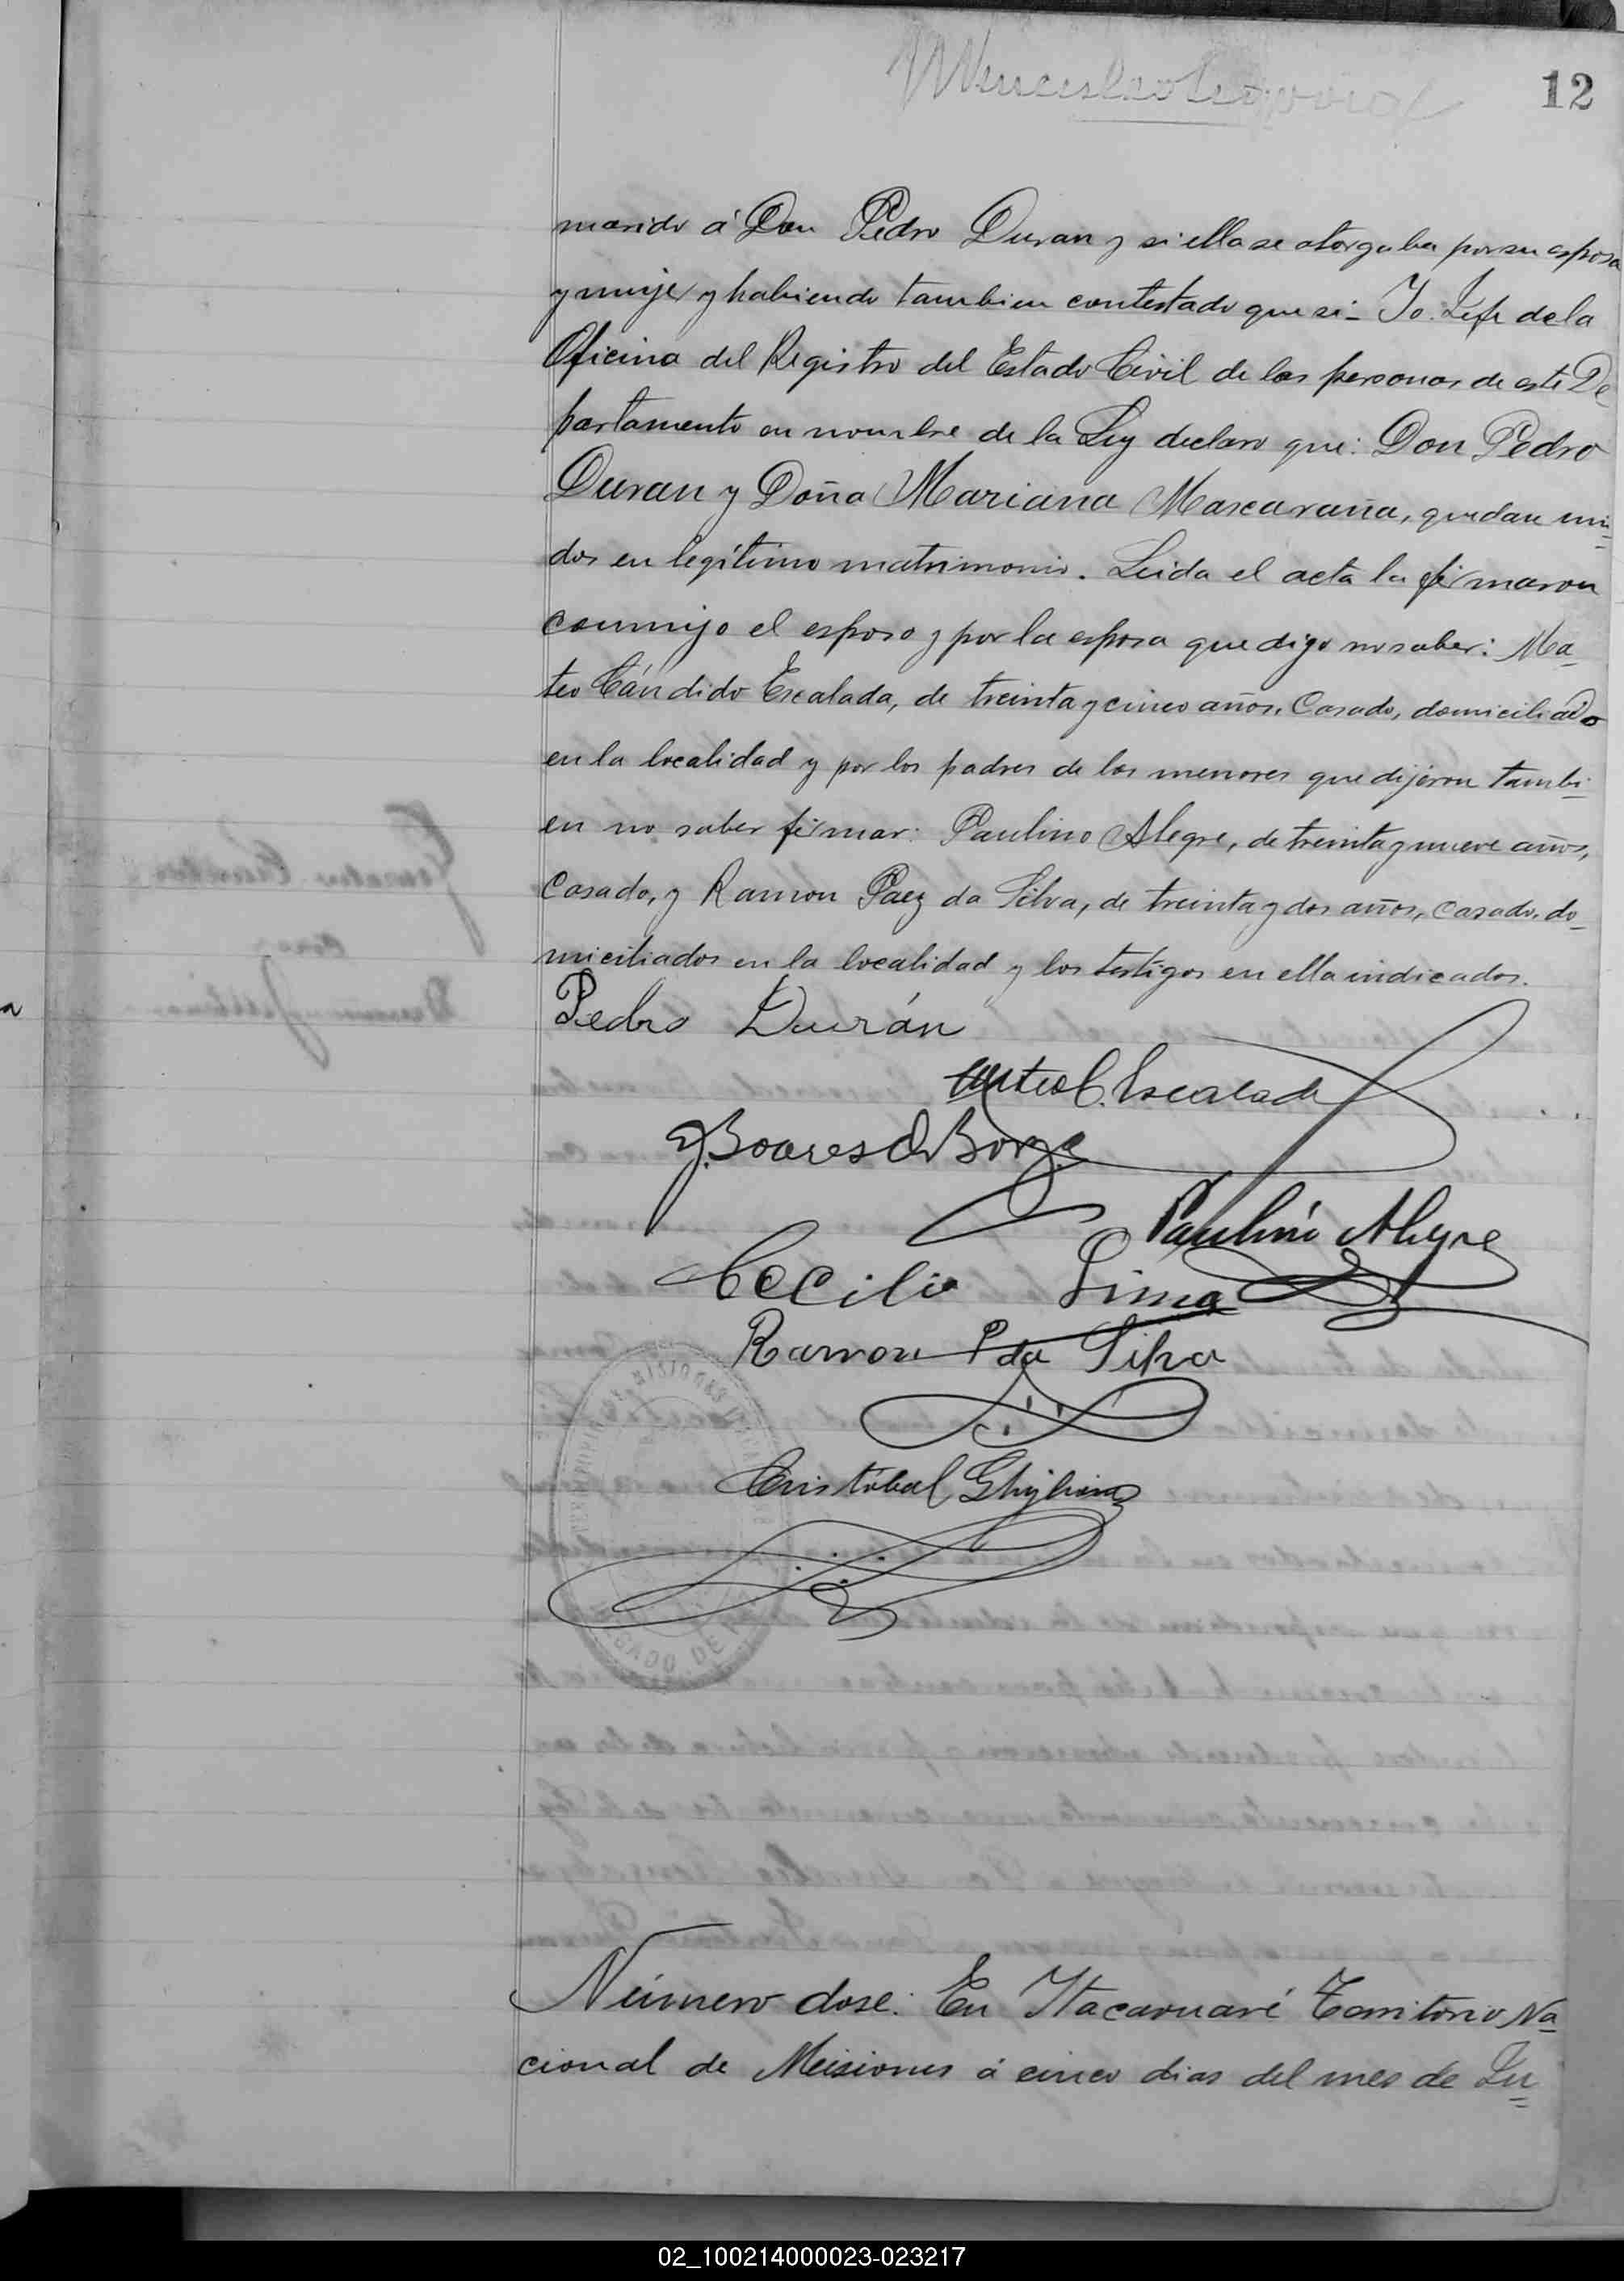 12
marido á Don Pedro Duran y si ella se otorgaba por su esposa
y mujer y habiendo tambien contestado que si - Yo Jefe de la
Oficina del Registro del Estado Civil de las personas de este De
partamento en nombre de la Ley declaro que: Don Pedro
Duran y Doña Mariana Mascaraña, quedan uni=
dos en legítimo matrimonio. Leida el acta la firmaron
conmigo el esposo y por la esposa que digo no saber: Ma=
teo Cándido Escalada, de treinta y cinco años, Casado, domiciliado
en la localidad y por los padres de los menores que dijeron tambi=
en no saber firmar: Paulino Alegre, de treinta y nueve años,
Casado, y Ramon Paez da Silva, de treinta y dos años, casado, do=
miciliados en la localidad y los testigos en ella indicados.
Pedro Durán
Mateo C. Escalada
J. Soares de Borge
Paulino Alegre
Cecilio Lima
Ramon P da Silva
Cristóbal
Número dose: En Itacaruaré Territorio Na=
cional de Misiones á cinco dias del mes de Ju=
02_100214000023-023217